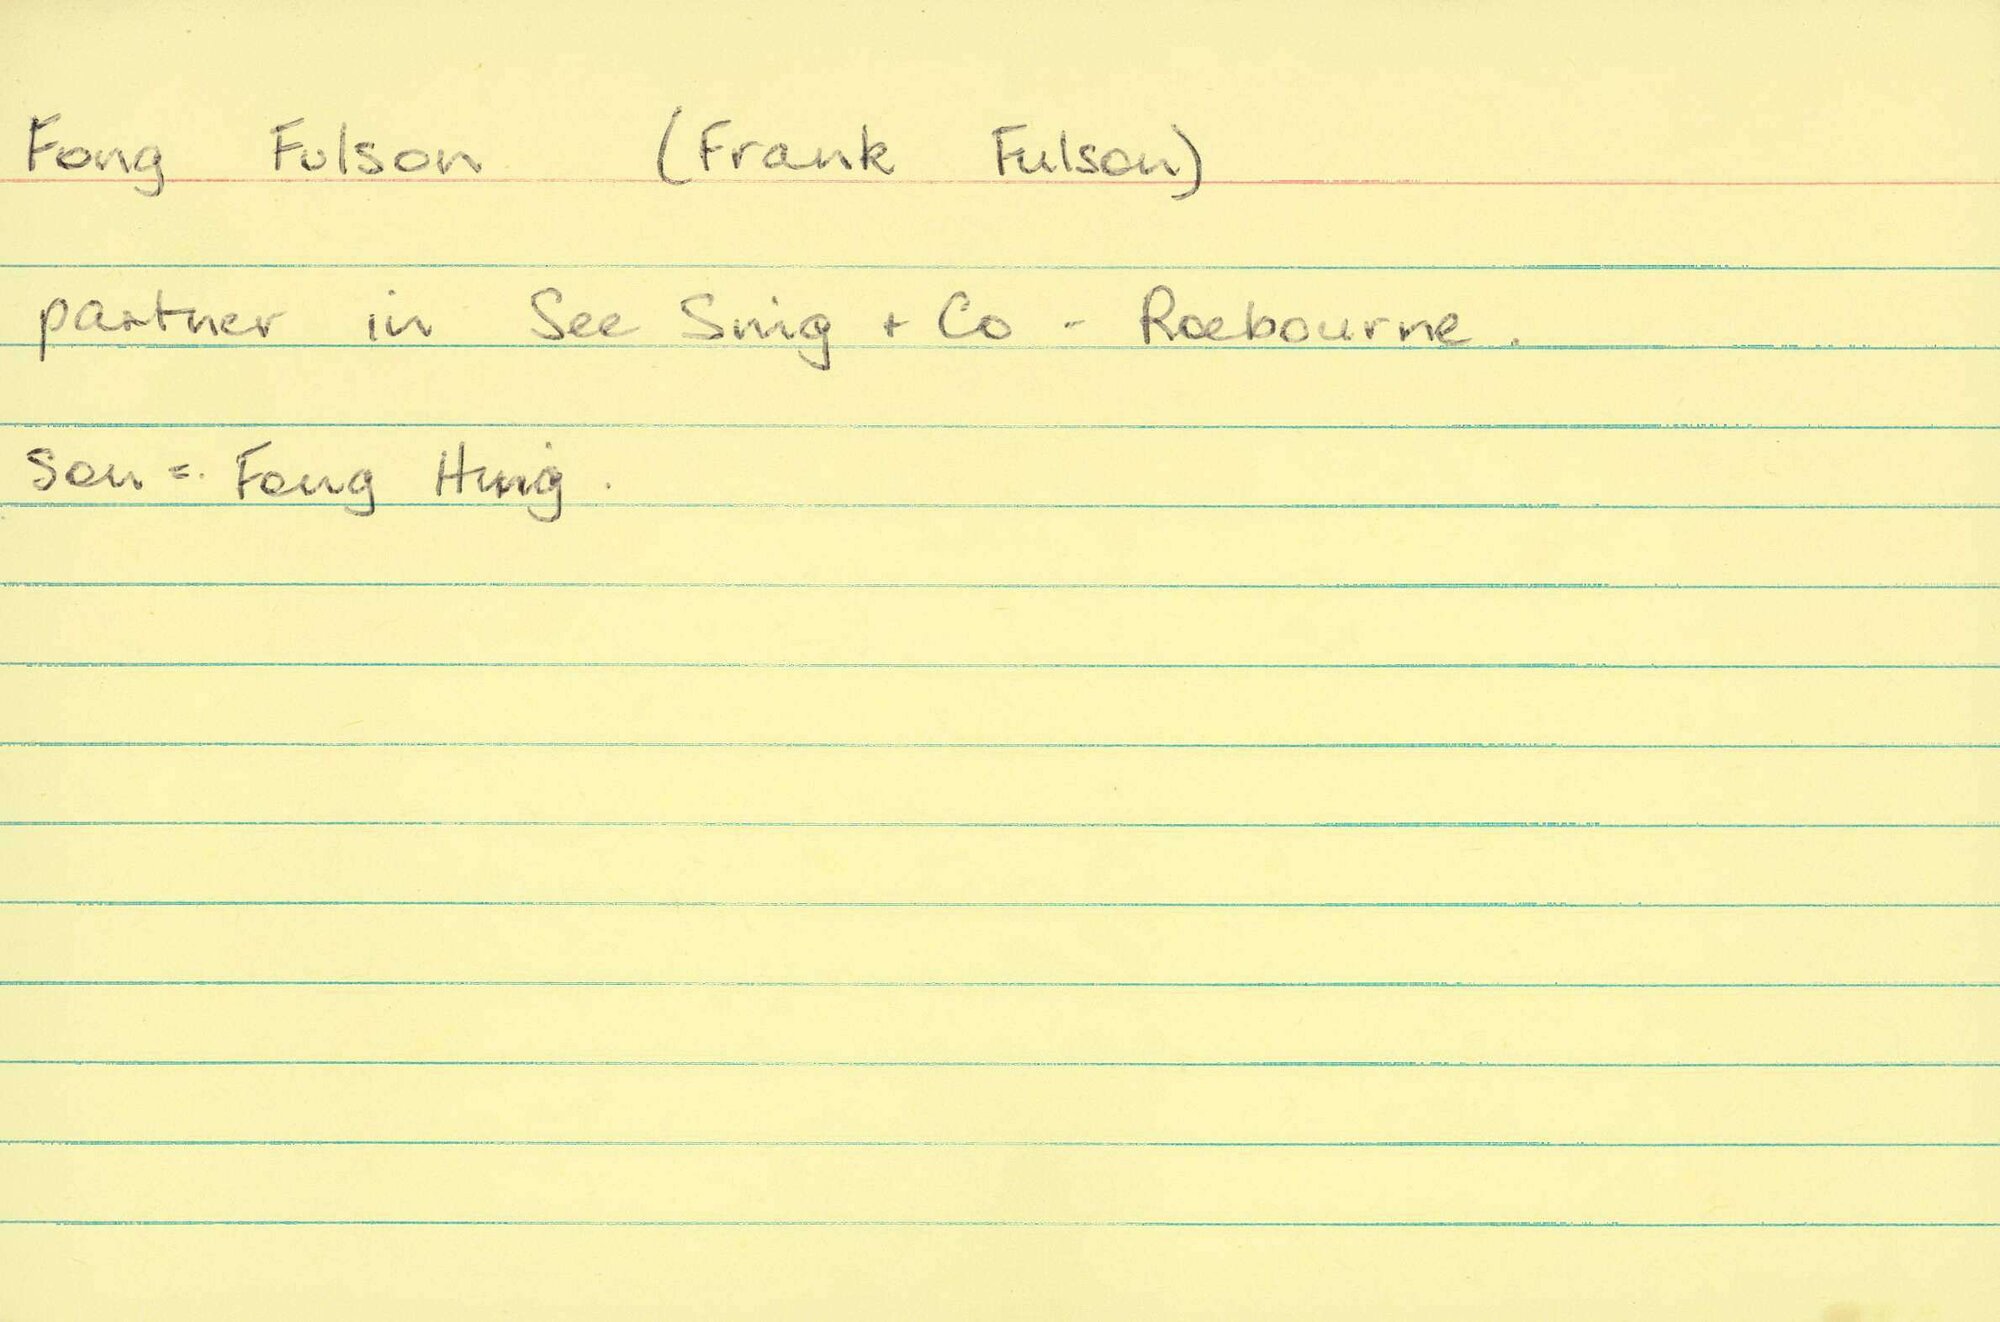 Fong Fulson (Frank Fulson)
partner in See Sing + Co - Roebourne.
son = Fong Hing.